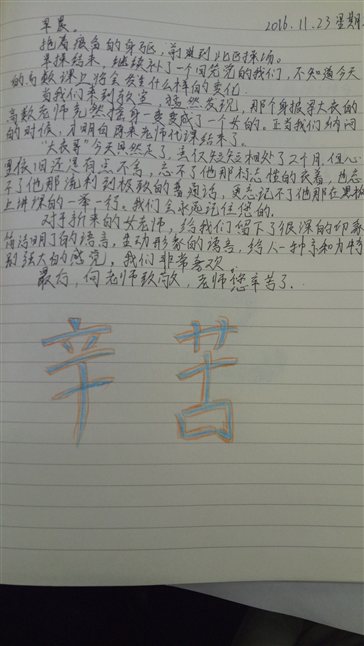 早晨。 2016.11.23 星期
拖着疲惫的身躯,前进到北区操场。
早操结束,继续补了一个回笼觉的我们,不知道今天
的高数课上将会发生什么样的变化。
当我们来到教室,猛然发现,那个身披军大衣的
高数老师竟然摇身一变变成了一个女的。正当我们纳闷
的时候,才明白原来老师代课结束了。
"大衣哥"今天真然走了,虽仅短短相处了2个月,但心
里依旧还是有点不舍,忘不了他那标志性的衣着,也忘
不了他那流利到极致的普通话,更忘记不了他那在黑板
上讲课的一举一行。我们会永远记住您的。
对于新来的女老师,给我们留下了很深的印象
简洁明了的语言,生动形象的语言,给人一种亲和力特
别强大的感觉,我们非常喜欢。
最后,向老师致敬,老师您辛苦了。
辛苦